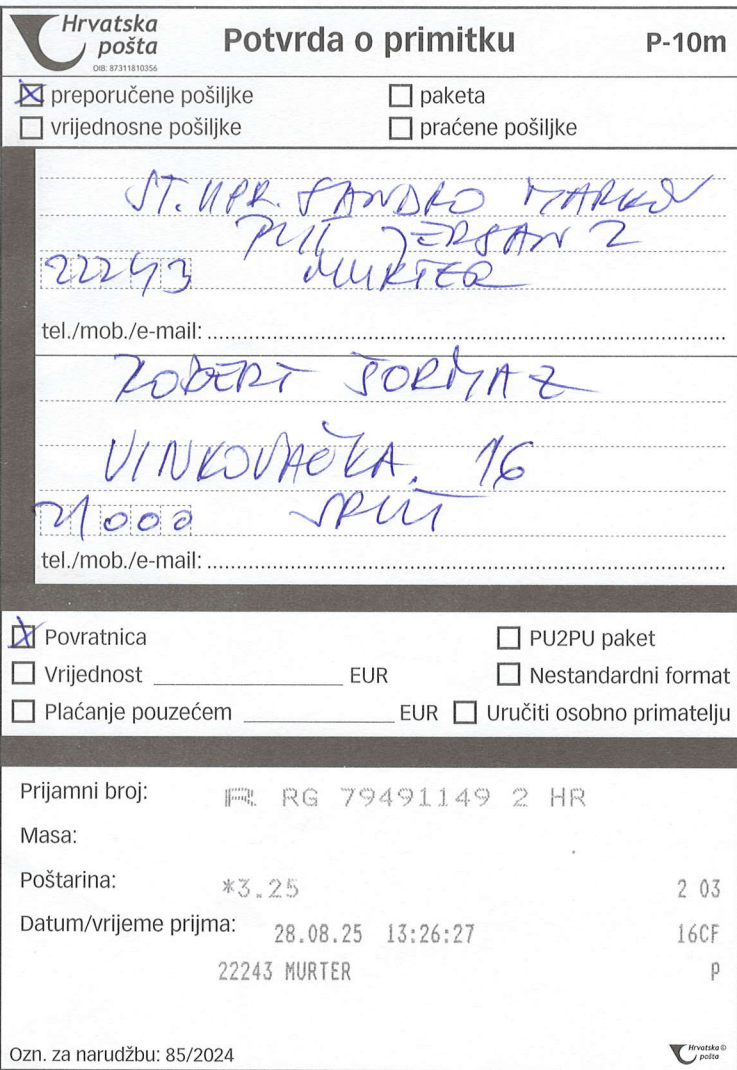 Hrvatska
pošta
OIB: 87311810356
Potvrda o primitku
P-10m
preporučene pošiljke
paketa
vrijednosne pošiljke
praćene pošiljke
ST. UPR. SANDRO MARKOV
PUT JERSAN 2
22243 MURTER
tel./mob./e-mail:
ROBERT ŠORMAZ
VINKOVAČKA. 16
21000 SPLIT
tel./mob./e-mail:
Povratnica
PU2PU paket
Vrijednost EUR
Nestandardni format
Plaćanje pouzećem EUR
Uručiti osobno primatelju
Prijamni broj: R RG 79491149 2 HR
Masa:
Poštarina: *3.25 2 03
Datum/vrijeme prijma: 28.08.25 13:26:27 16CF
22243 MURTER P
Ozn. za narudžbu: 85/2024
Hrvatska ©
pošta